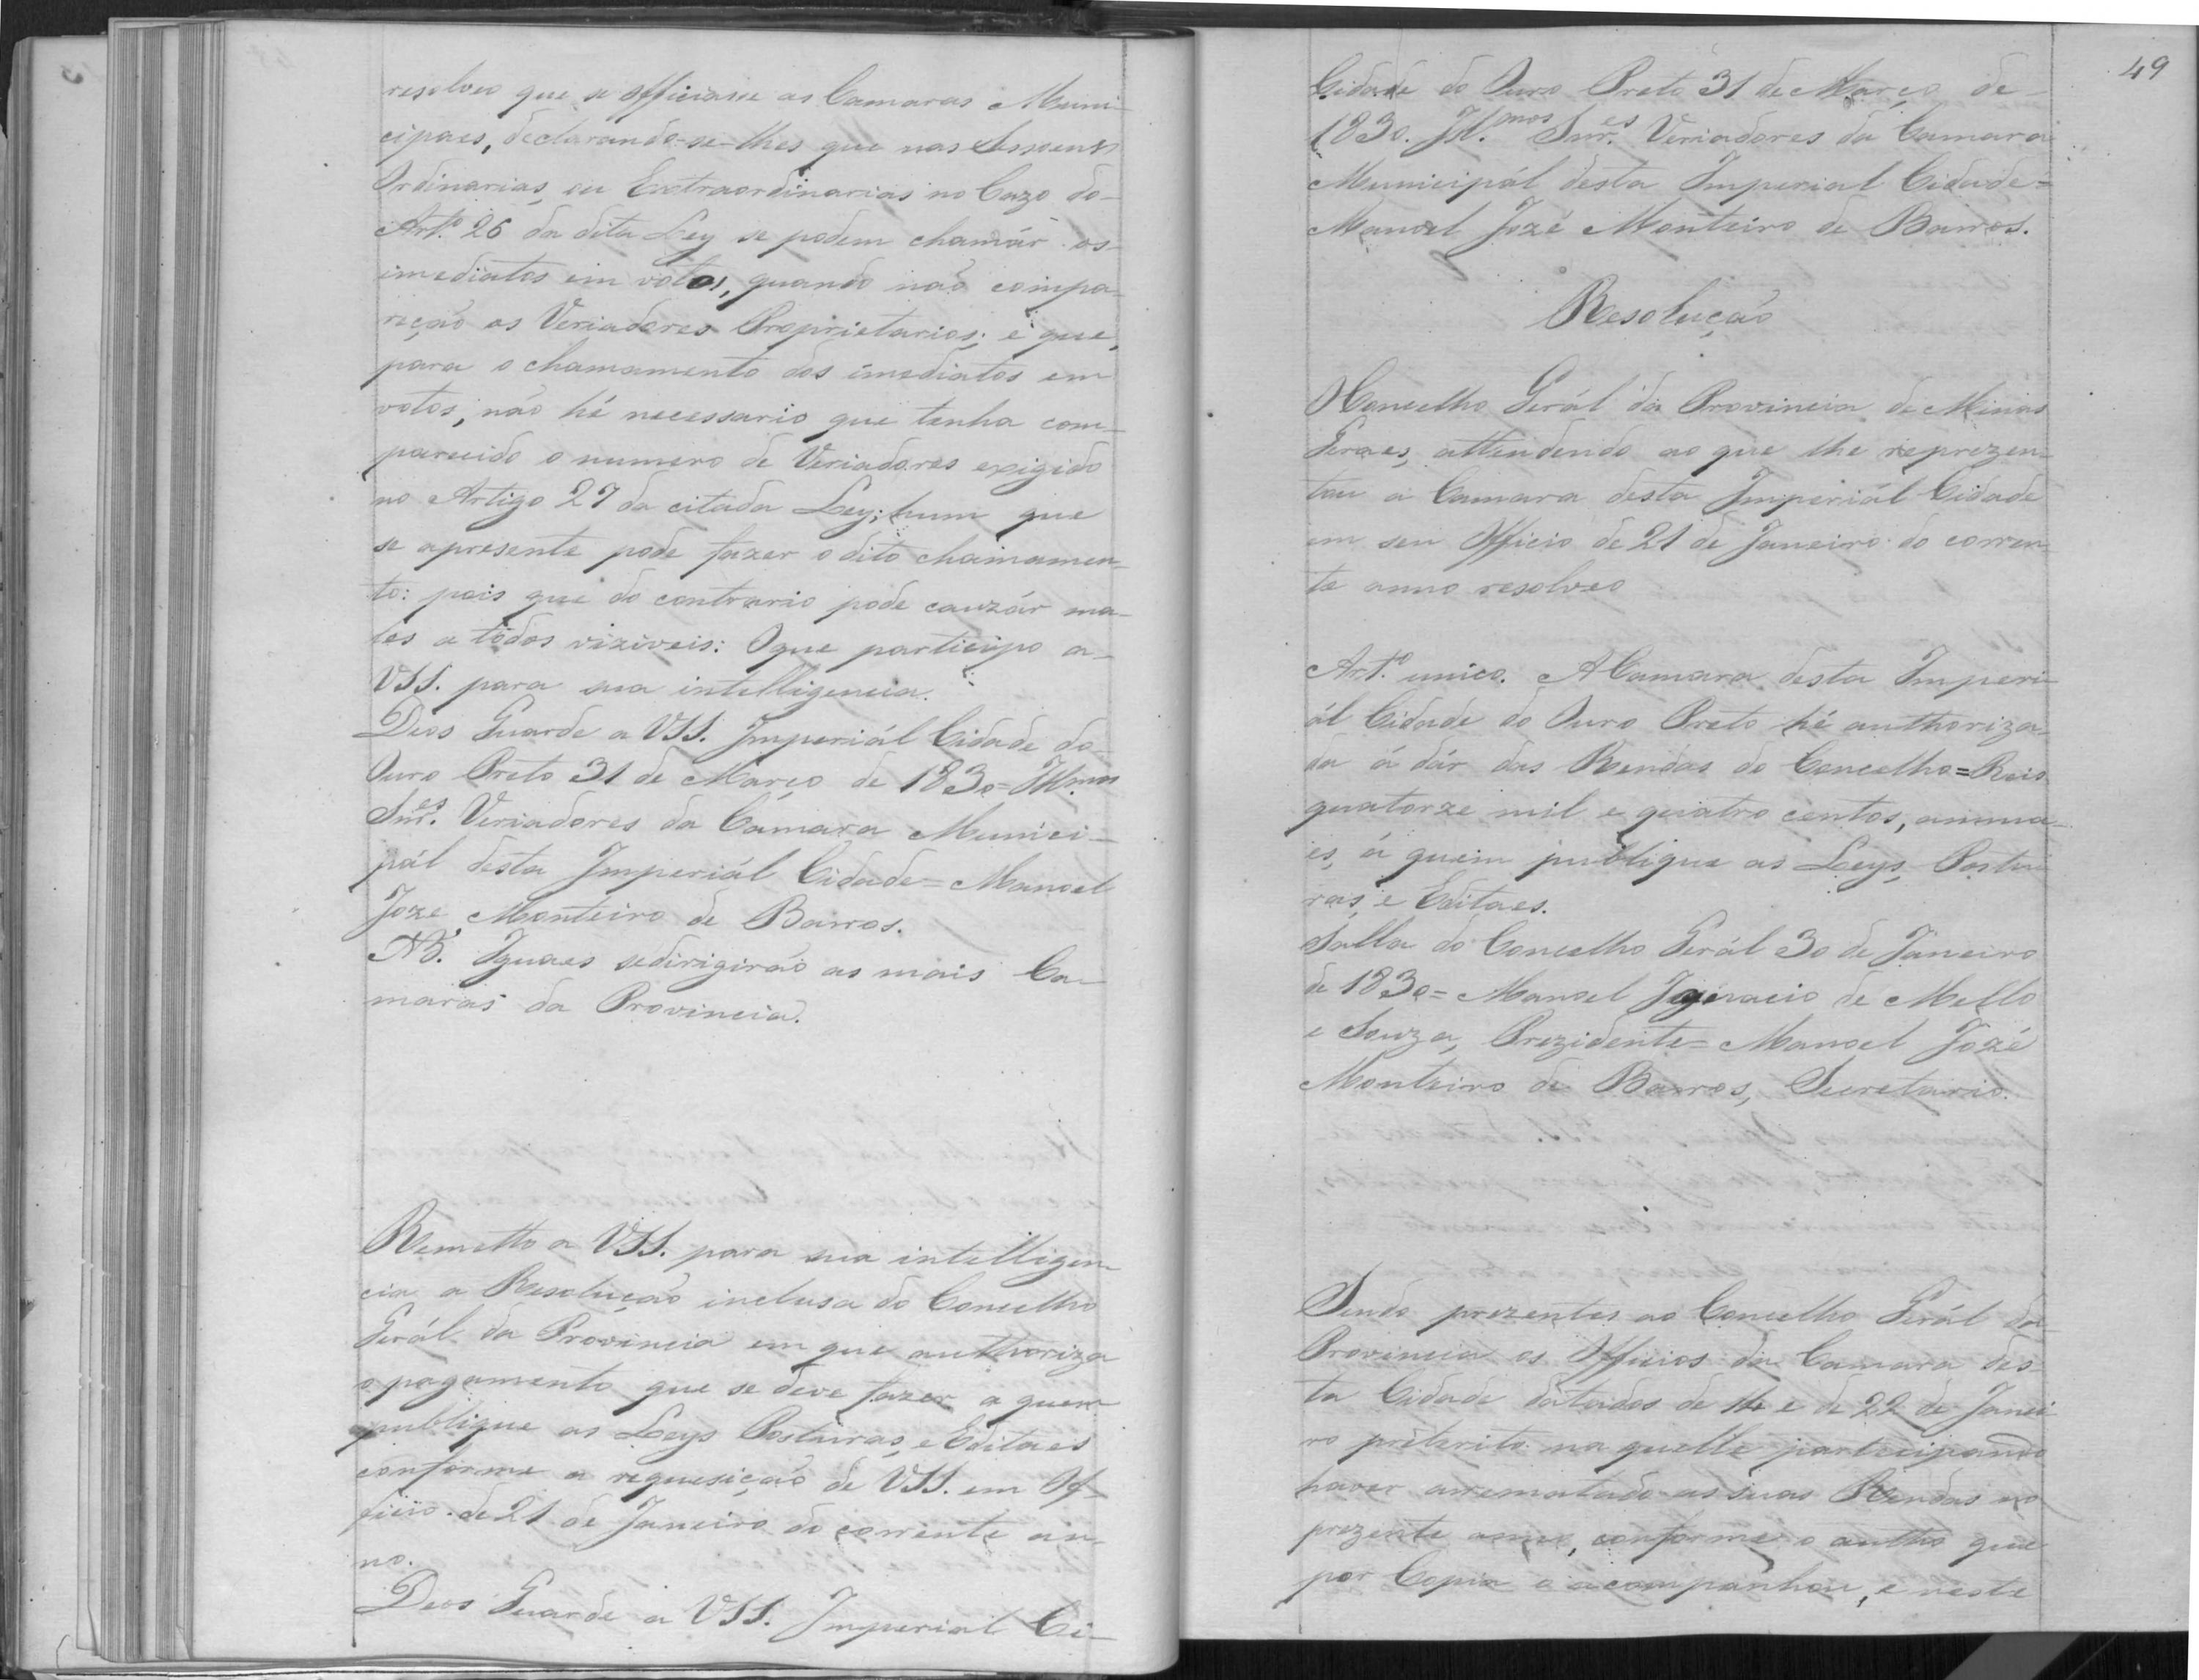 resolveo que se officiasse as Camaras Muni-
cipaes, declarando-se-lhes que nas Sessoens
Ordinarias, ou Extraordinarias no Cazo do
Art.º 26 da dita Ley se podem chamár os
imediatos em votos, quando não compa-
reção os Veriadores Proprietarios; e que,
para o chamamento dos imediatos em
votos, não hé necessario que tenha com-
parecido o numero de Veriadores exigido
no Artigo 27 da citada Ley; hum que
se apresente pode fazer o dito chamamen-
to: pois que do contrario pode cauzár ma-
les a todos viziveis: O que participo a
VSS. para sua intelligencia.
Deos Guarde a VSS. Imperiál Cidade do
Ouro Preto 31 de Março de 1830 = Ill.mos
Snr.es Veriadores da Câmara Munici-
pál desta Imperiál Cidade = Manoel
Joze Monteiro de Barros.
NB. Iguaes se dirigirão as mais Ca-
maras da Provincia.
Remetto a VSS. para sua intelligen-
cia a Resolução inclusa do Concelho
Gerál da Provincia em que authoriza
o pagamento que se deve fazer a quem
publique as Leys Posturas, e Editaes
conforme a requesição de VSS. em Of-
ficio de 21 de Janeiro do corrente an-
no.
Deos Guarde a VSS. Imperial Ci-
49
Cidade do Ouro Preto 31 de Março de
1830. Ill.mos Snr.es Veriadores da Camara
Municipál desta Imperial Cidade =
Manoel Jozé Monteiro de Barros.
Resolução
O Concelho Gerál da Provincia de Minas
Geraes, attendendo ao que lhe reprezen-
tou a Camara desta Imperiál Cidade
em seu Officio de 21 de Janeiro do corren-
te anno resolveo
Art.º unico. A Camara desta Imperi-
ál Cidade do Ouro Preto hé authoriza-
da á dár das Rendas do Concelho = Reis
quatorze mil e quatro centos, annua-
es, á quem publique as Leys, Postu-
ras, e Editaes.
Salla do Concelho Gerál 30 de Janeiro
de 1830 = Manoel Ignacio de Mello
e Souza, Prezidente = Manoel Jozé
Monteiro de Barros, Secretario.
Sendo prezentes ao Concelho Gerál da
Provincia os Officios da Camara des-
ta Cidade datados de e de 22 de Janei-
ro preterito na quelle participando
haver arrematado as suas Rendas no
prezente anno, conforme o autho que
por Copia o acompanhou, e neste